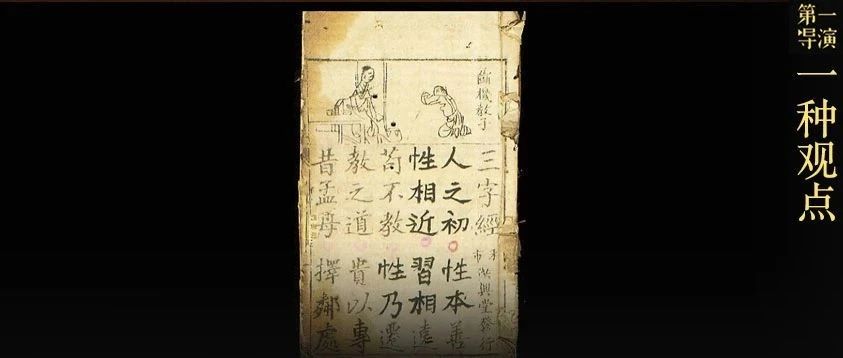 第一
导演
一种观点
斷機教子
三字經
興堂發行
人之初 性本善
性相近 習相遠
苟不教 性乃遷
教之道 貴以專
昔孟母 擇鄰處